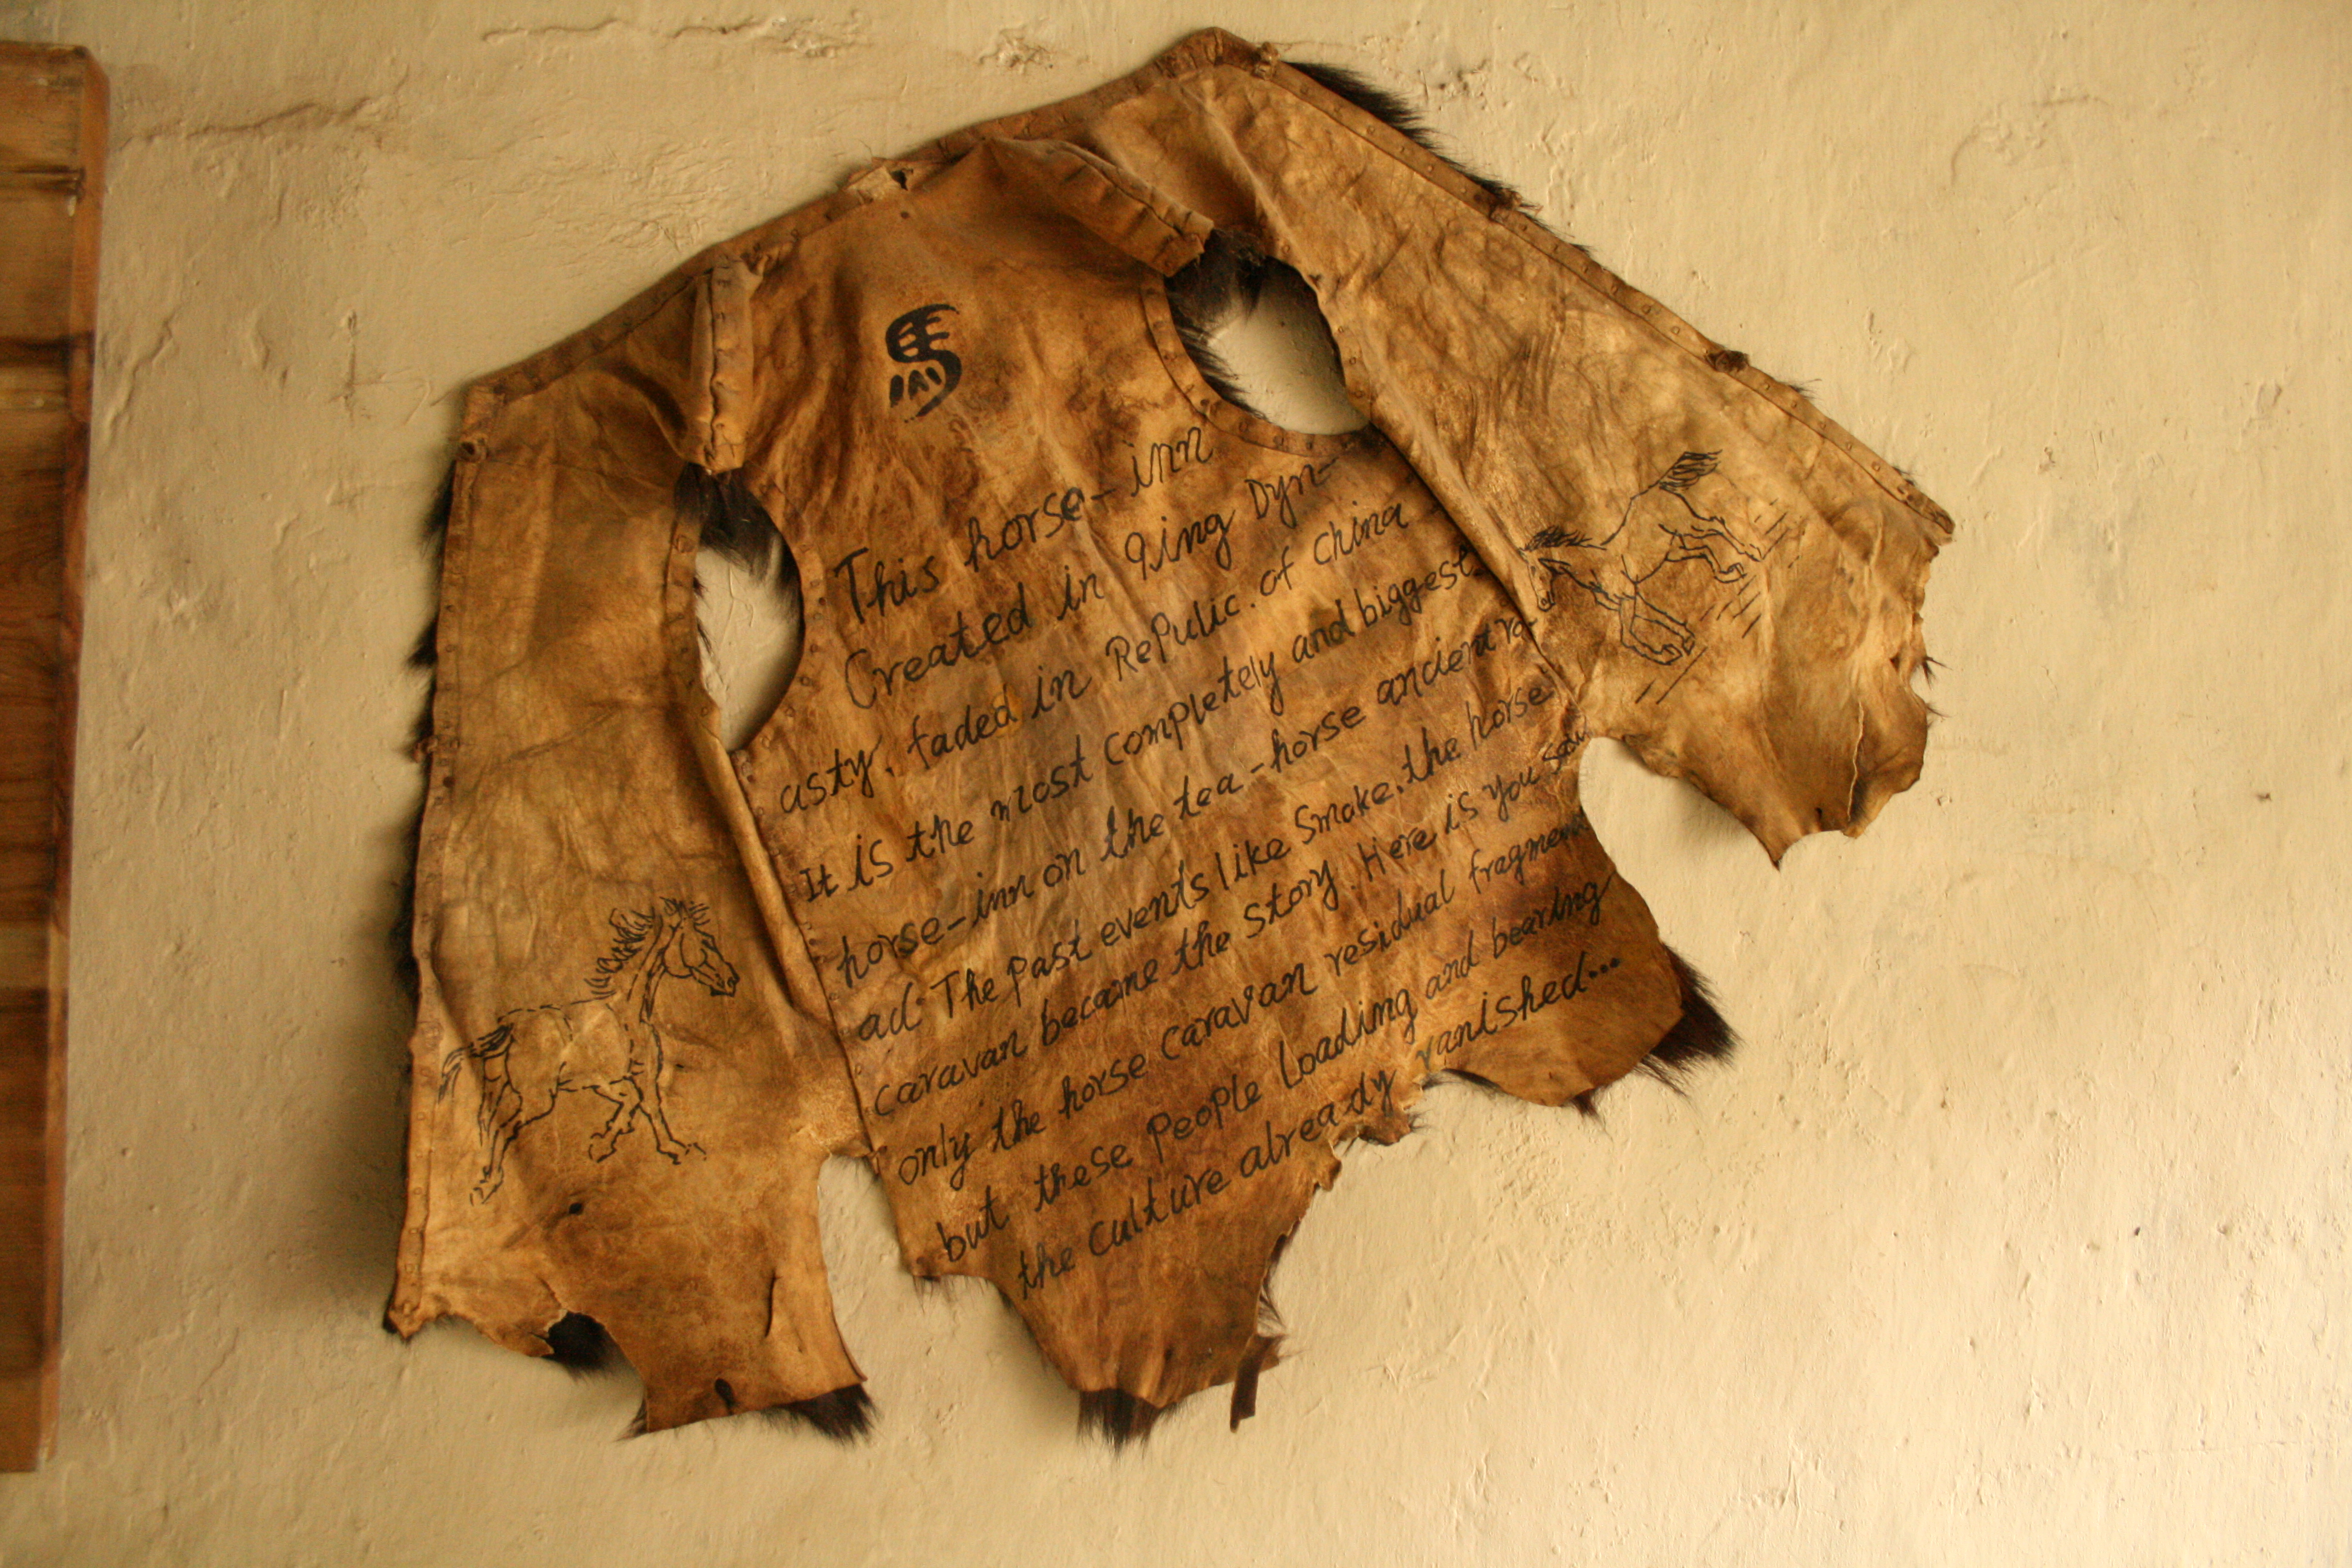 馬
This horse-inn
Created in qing Dyn-
asty, faded in Repulic. of China
It is the most completely and biggest
horse-inn on the tea-horse ancient ro-
ad. The past events like smoke, the horse
caravan became the story. Here is you saw
only the horse caravan residual fragment
but these people loading and bearing
the culture already vanished...